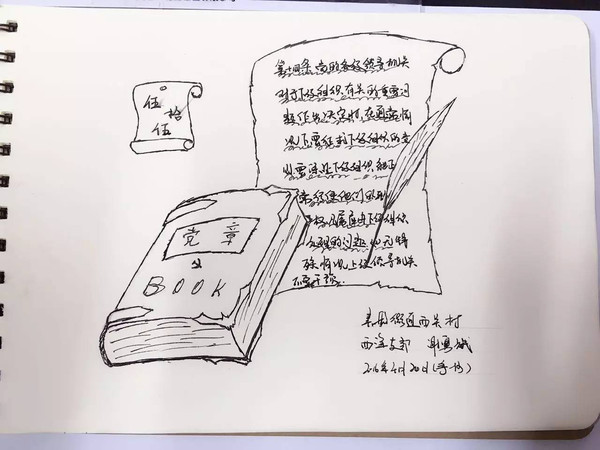 伍拾
伍
第十四条 党的各级领导机关
对同下级组织有关的重要问
题作出决定时,在通常情
况下,要征求下级组织的意
见。要保证下级组织能正
常行使他们的职
权。凡属应由下级组织
处理的问题,如无特
殊情况,上级领导机关
不要干预。
党章
BOOK
街道西关村
支部
2016年4月20日(手抄)